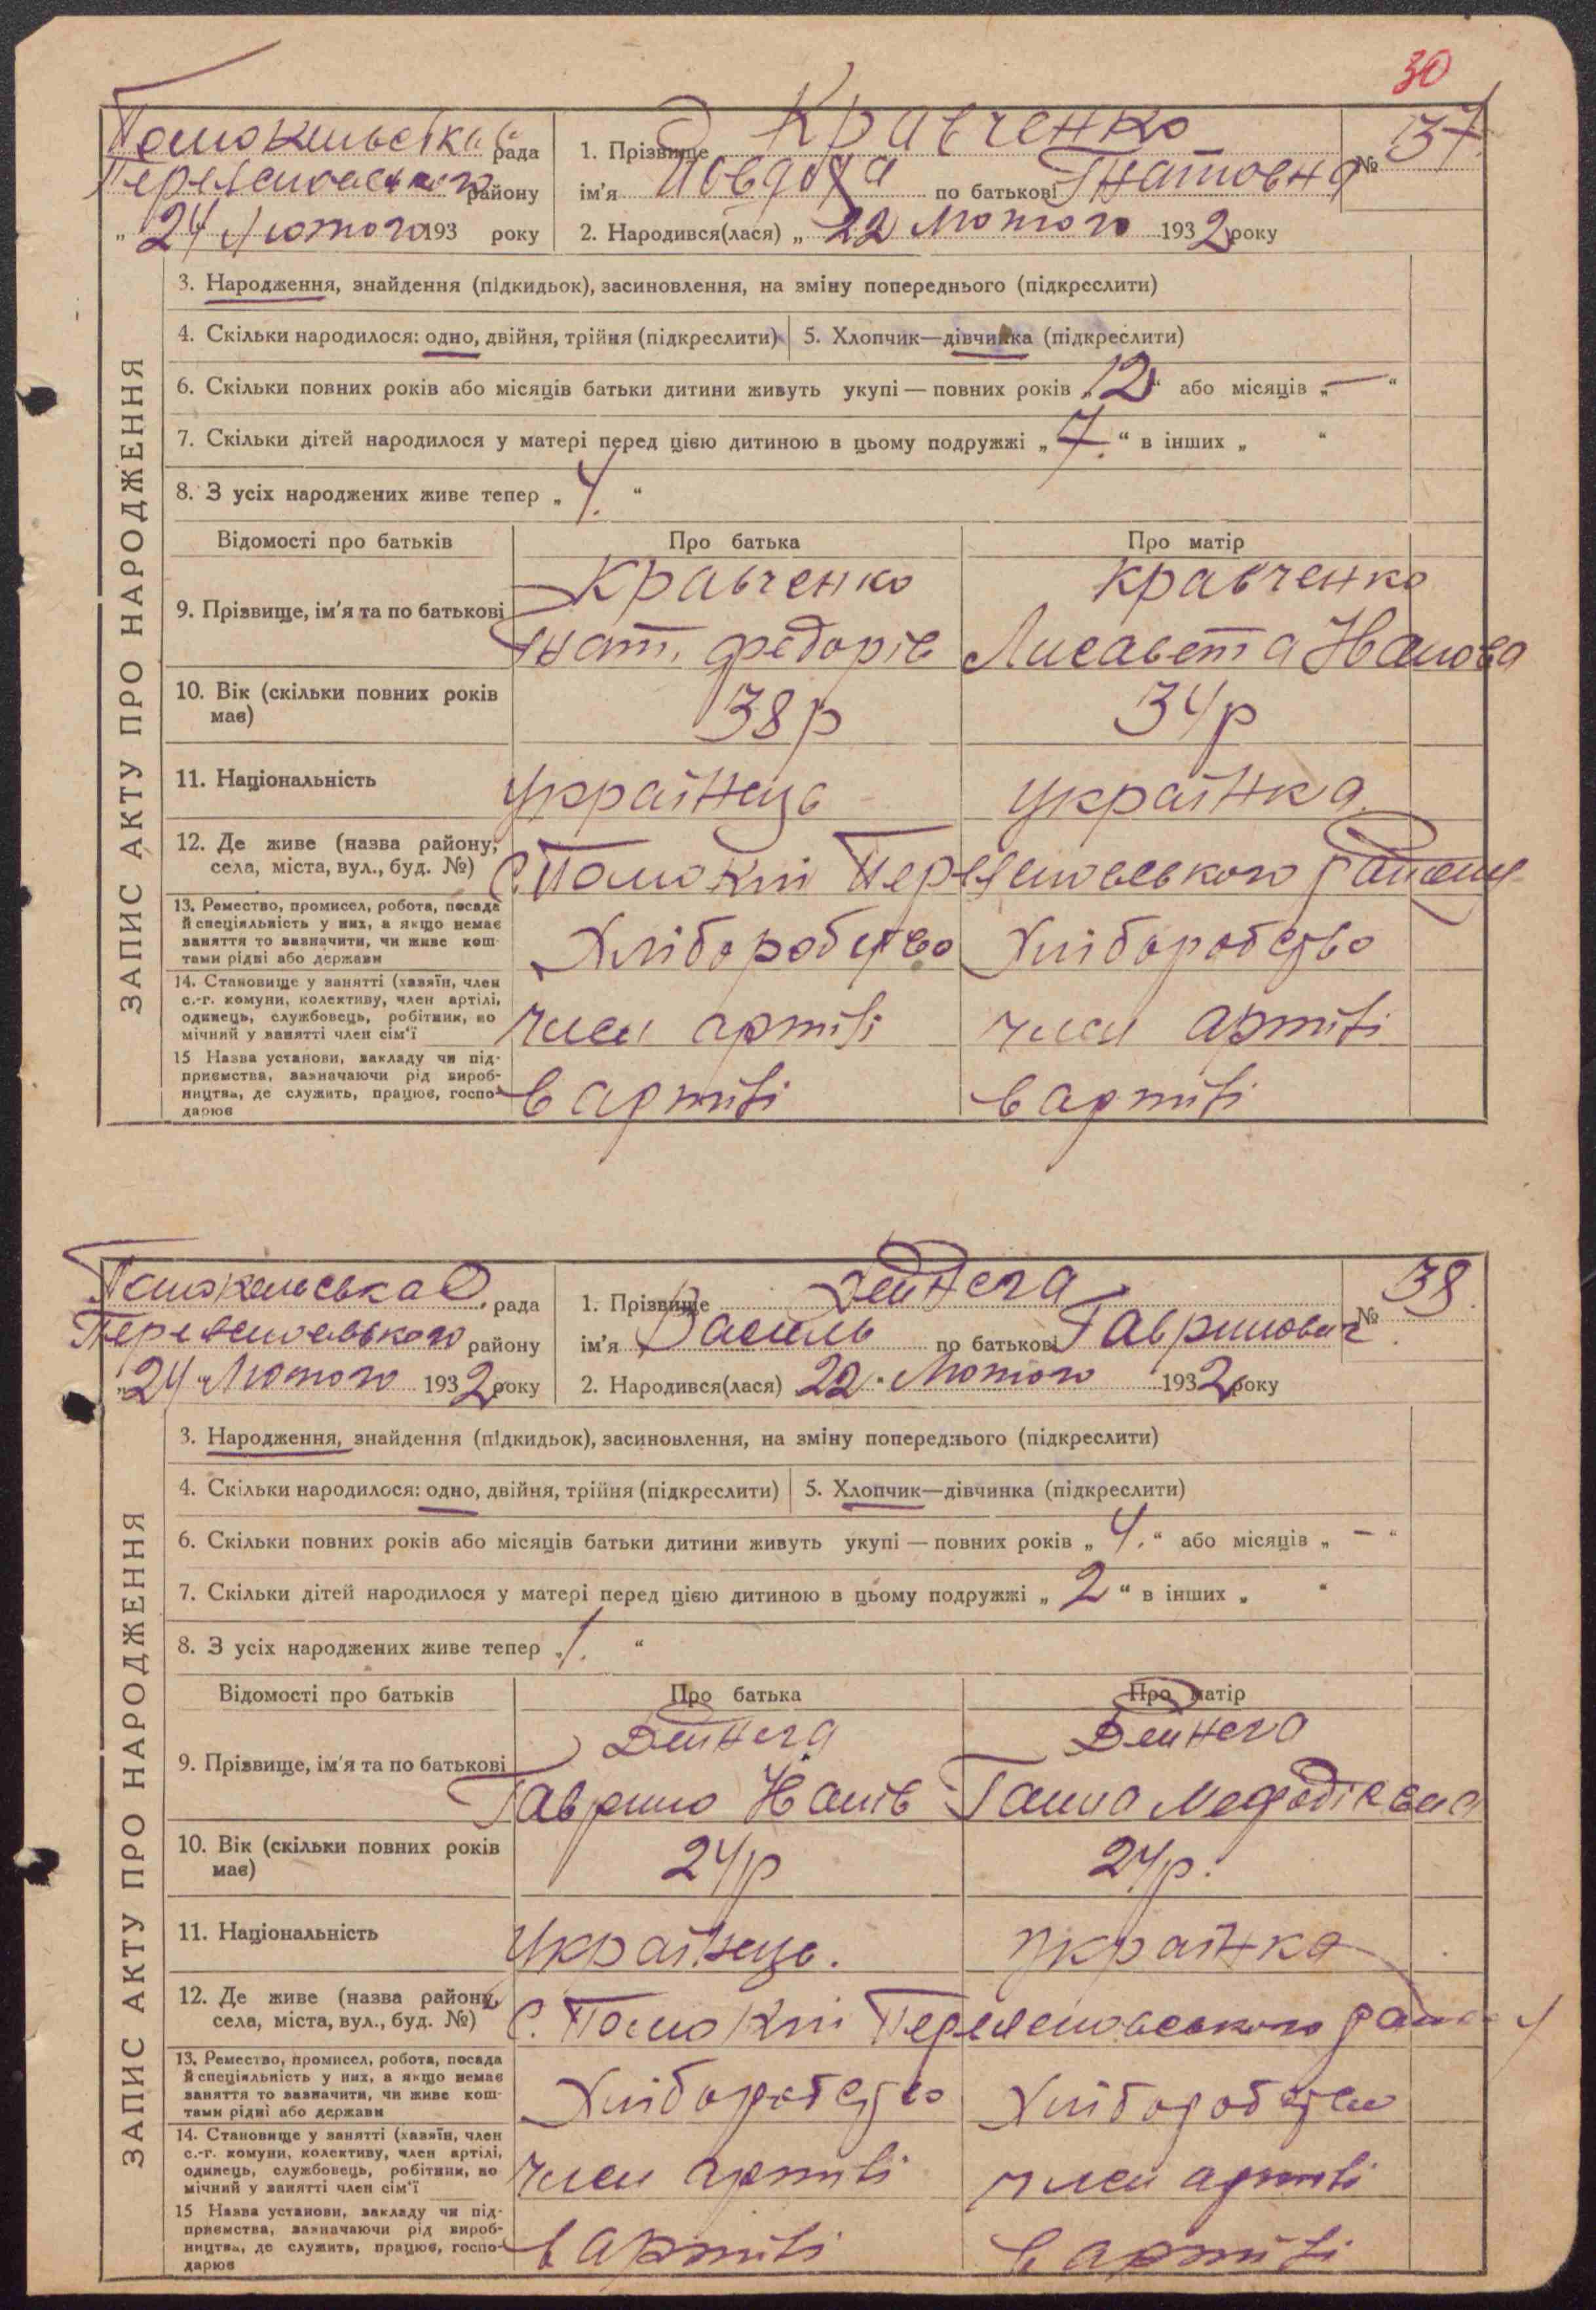 30
Помокельська рада
району
„24 Лютого 193 року
1. Прізвище Кравченко
ім'я Йовдоха по батькові Гнатовна
2. Народився(лася) „ 22 Лютого 1932 року
№ 37.
ЗАПИС АКТУ ПРО НАРОДЖЕННЯ
3. Народження, знайдення (підкидьок), засиновлення, на зміну попереднього (підкреслити)
4. Скільки народилося: одно, двійня, трійня (підкреслити)
5. Хлопчик—дівчинка (підкреслити)
6. Скільки повних років або місяців батьки дитини живуть укупі — повних років „12“ або місяців „—“
7. Скільки дітей народилося у матері перед цією дитиною в цьому подружжі „7.“ в інших „ “
8. З усіх народжених живе тепер „4.“
Відомості про батьків
Про батька
Про матір
9. Прізвище, ім'я та по батькові
Кравченко
Гнат. Федорів
Кравченко
Лисавета Іванова
10. Вік (скільки повних років має)
38 р
34 р
11. Національність
Українець
Українка
12. Де живе (назва району, села, міста, вул., буд. №)
С. району
13. Ремество, промисел, робота, посада й спеціяльність у них, а якщо немає заняття то зазначити, чи живе коштами рідні або держави
Хліборобство
Хліборобство
14. Становище у занятті (хазяїн, член с.-г. комуни, колективу, член артілі, одинець, службовець, робітник, помічний у занятті член сім'ї
член артілі
член артілі
15 Назва установи, закладу чи підприємства, зазначаючи рід виробництва, де служить, працює, господарює
в артілі
в артілі
Помокельська рада
району
„24„ Лютого 1932 року
1. Прізвище Дейнега
ім'я Василь по батькові Гаврилович
2. Народився(лася) 22„ Лютого 1932 року
№ 38.
ЗАПИС АКТУ ПРО НАРОДЖЕННЯ
3. Народження, знайдення (підкидьок), засиновлення, на зміну попереднього (підкреслити)
4. Скільки народилося: одно, двійня, трійня (підкреслити)
5. Хлопчик—дівчинка (підкреслити)
6. Скільки повних років або місяців батьки дитини живуть укупі — повних років „4.“ або місяців „—“
7. Скільки дітей народилося у матері перед цією дитиною в цьому подружжі „2“ в інших „ “
8. З усіх народжених живе тепер „1.“
Відомості про батьків
Про батька
Про матір
9. Прізвище, ім'я та по батькові
Дейнега
Гаврило Іванів
Дейнега
Ганна Мефодіевна
10. Вік (скільки повних років має)
24 р
24 р.
11. Національність
Українець.
Українка
12. Де живе (назва району, села, міста, вул., буд. №)
С. району
13. Ремество, промисел, робота, посада й спеціяльність у них, а якщо немає заняття то зазначити, чи живе коштами рідні або держави
Хліборобство
Хліборобство
14. Становище у занятті (хазяїн, член с.-г. комуни, колективу, член артілі, одинець, службовець, робітник, помічний у занятті член сім'ї
член артілі
член артілі
15 Назва установи, закладу чи підприємства, зазначаючи рід виробництва, де служить, працює, господарює
в артілі
в артілі